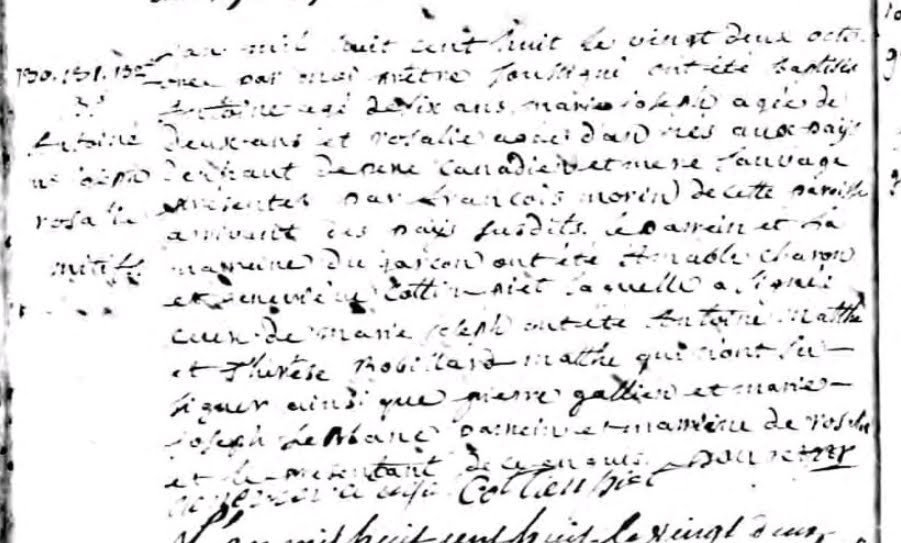 l'an mil huit cent huit le vingt deux octo
130. 131. 132
par moi prêtre soussigné ont été baptisés
Antoine agé de six ans, marie joseph agée de
Antoine
deux ans et rosalie agée d'un nés aux pays
joseph
d'enhaut de pere Canadien et mere Sauvage
rosalie
presentés par françois morin de cette paroisse
arrivant des pays susdits. le parrein et la
mitifs
marreine du garcon ont été Amable charon
et Genevieve Cottin piet laquelle a signé:
ceux de marie joseph ont été Antoine Matthe
et Therèse Robillard matthe qui n'ont su
signer ainsi que pierre gallien et marie
joseph LeBlanc parrein et marreine de rosalie
et le presentant de ce enquis.
genevieve Cottenpiet
L'an mil huit cent huit le vingt deux